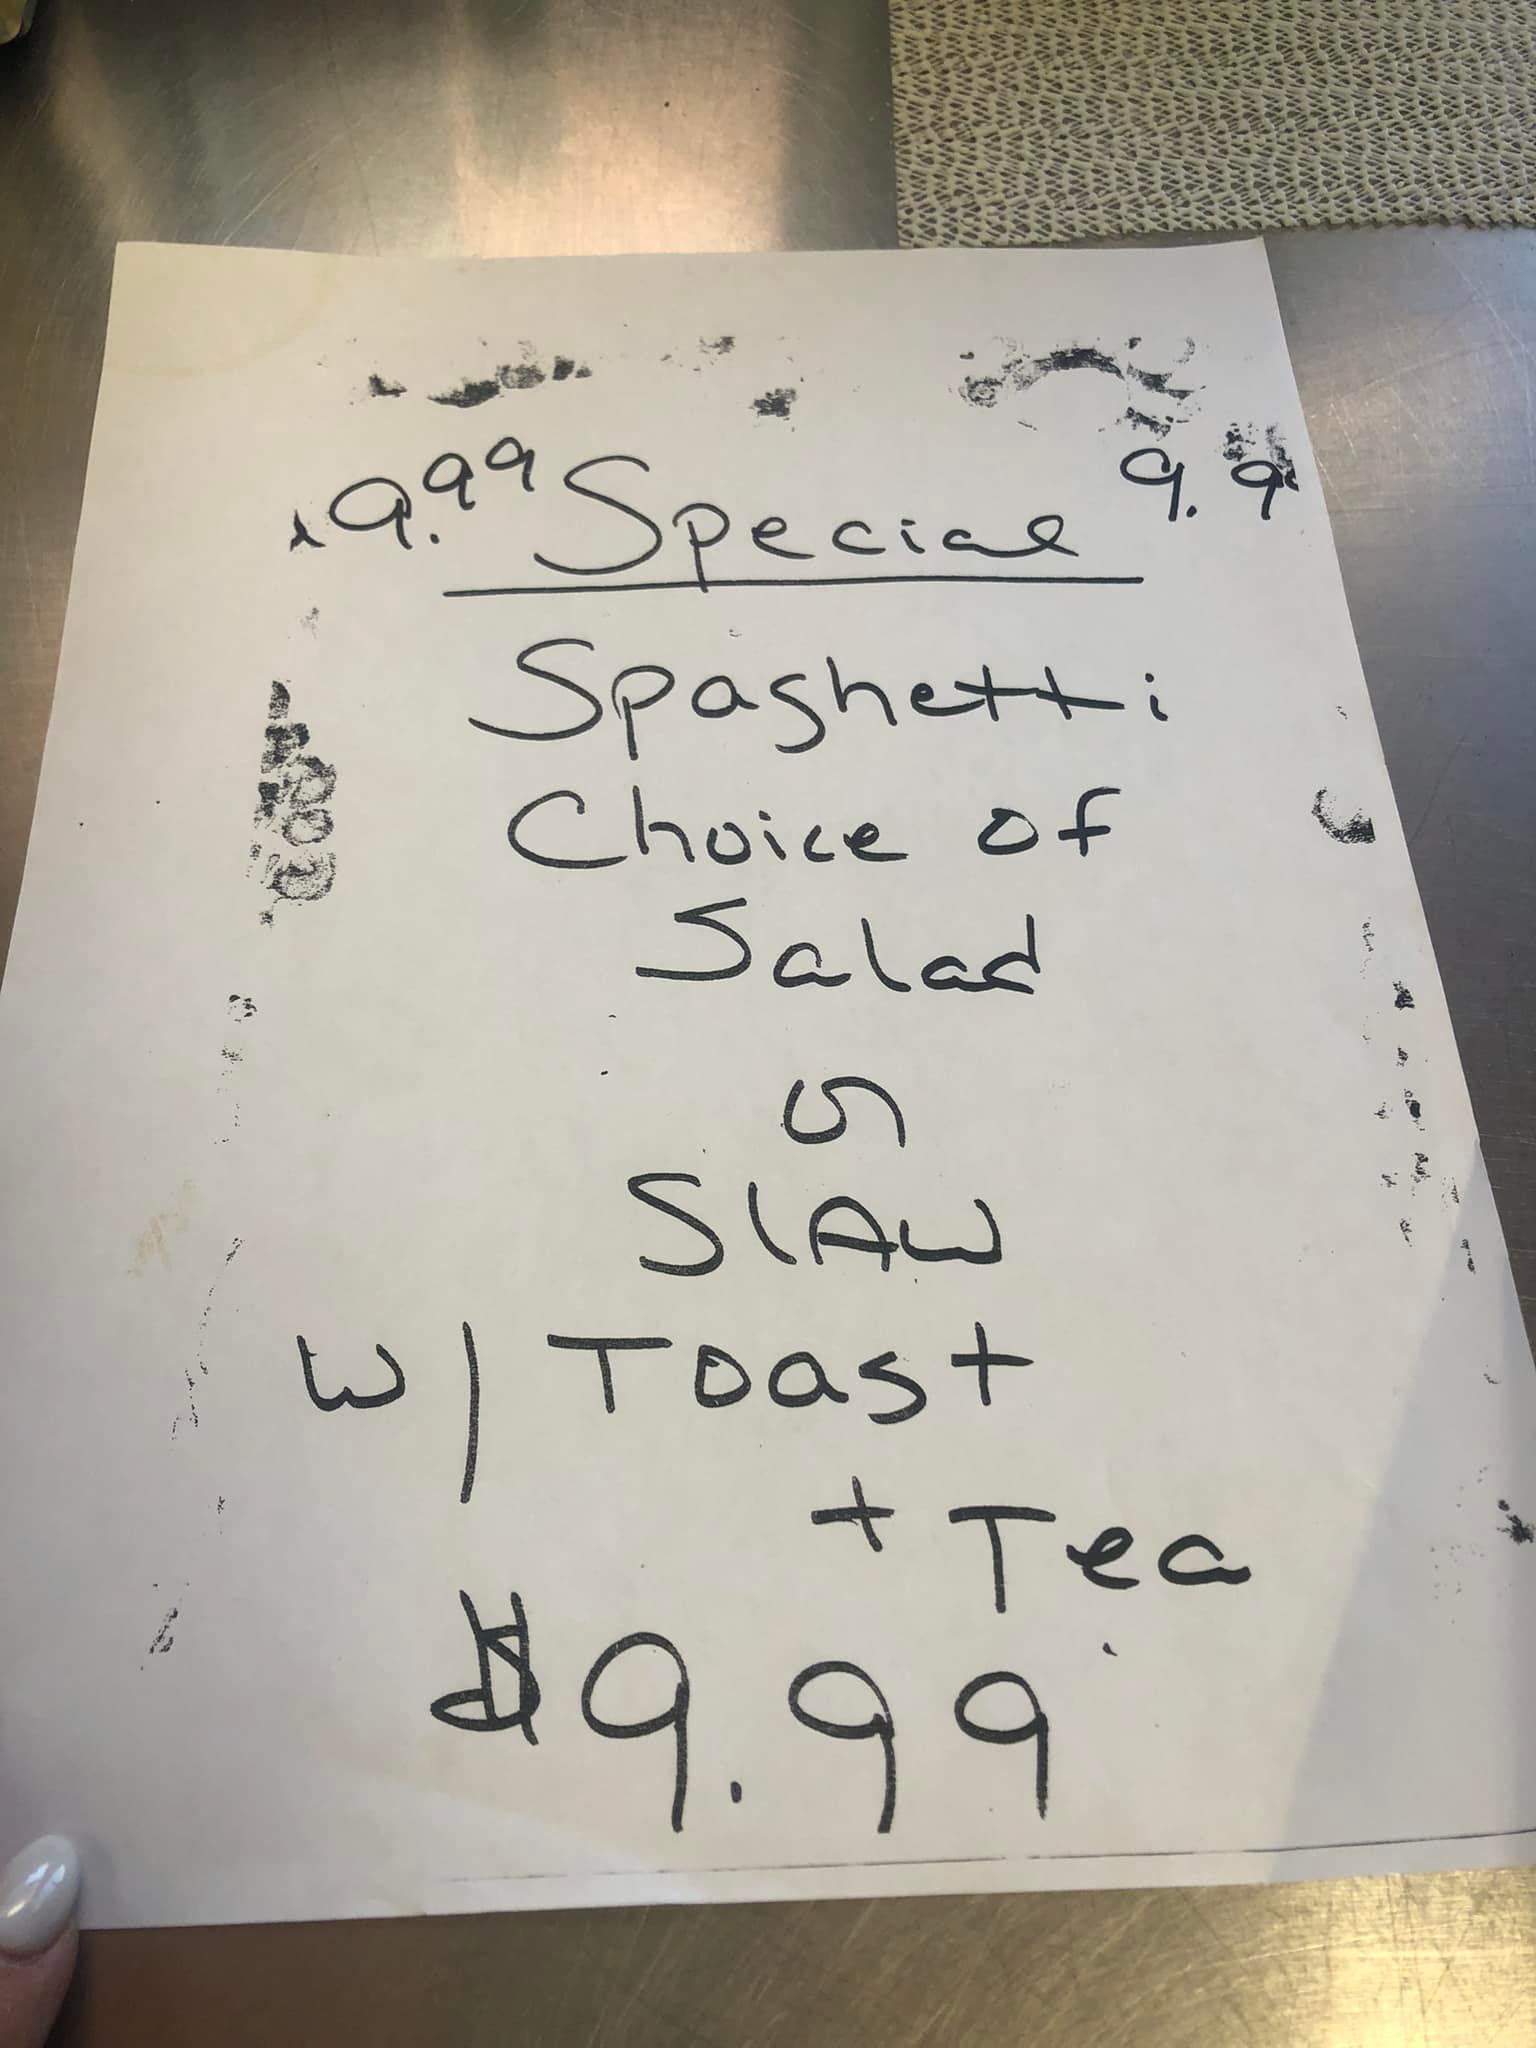 9.99 Special 9.9
Spaghetti
Choice of
Salad
or
SlAw
w/ Toast
+ Tea
$9.99